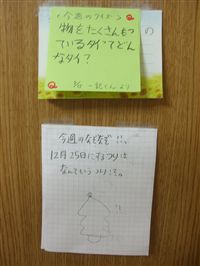 <今週のクイズ>
物をたくさんもっ
ているタイってどん
なタイ?
の
今週のなぞなぞ!!
12月25日にするつりは
なんていうつり?